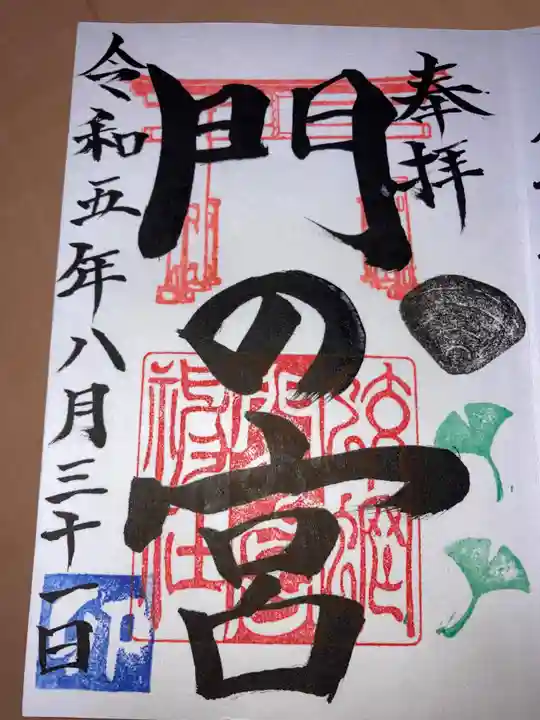 奉拝
門の宮
令和五年八月三十一日